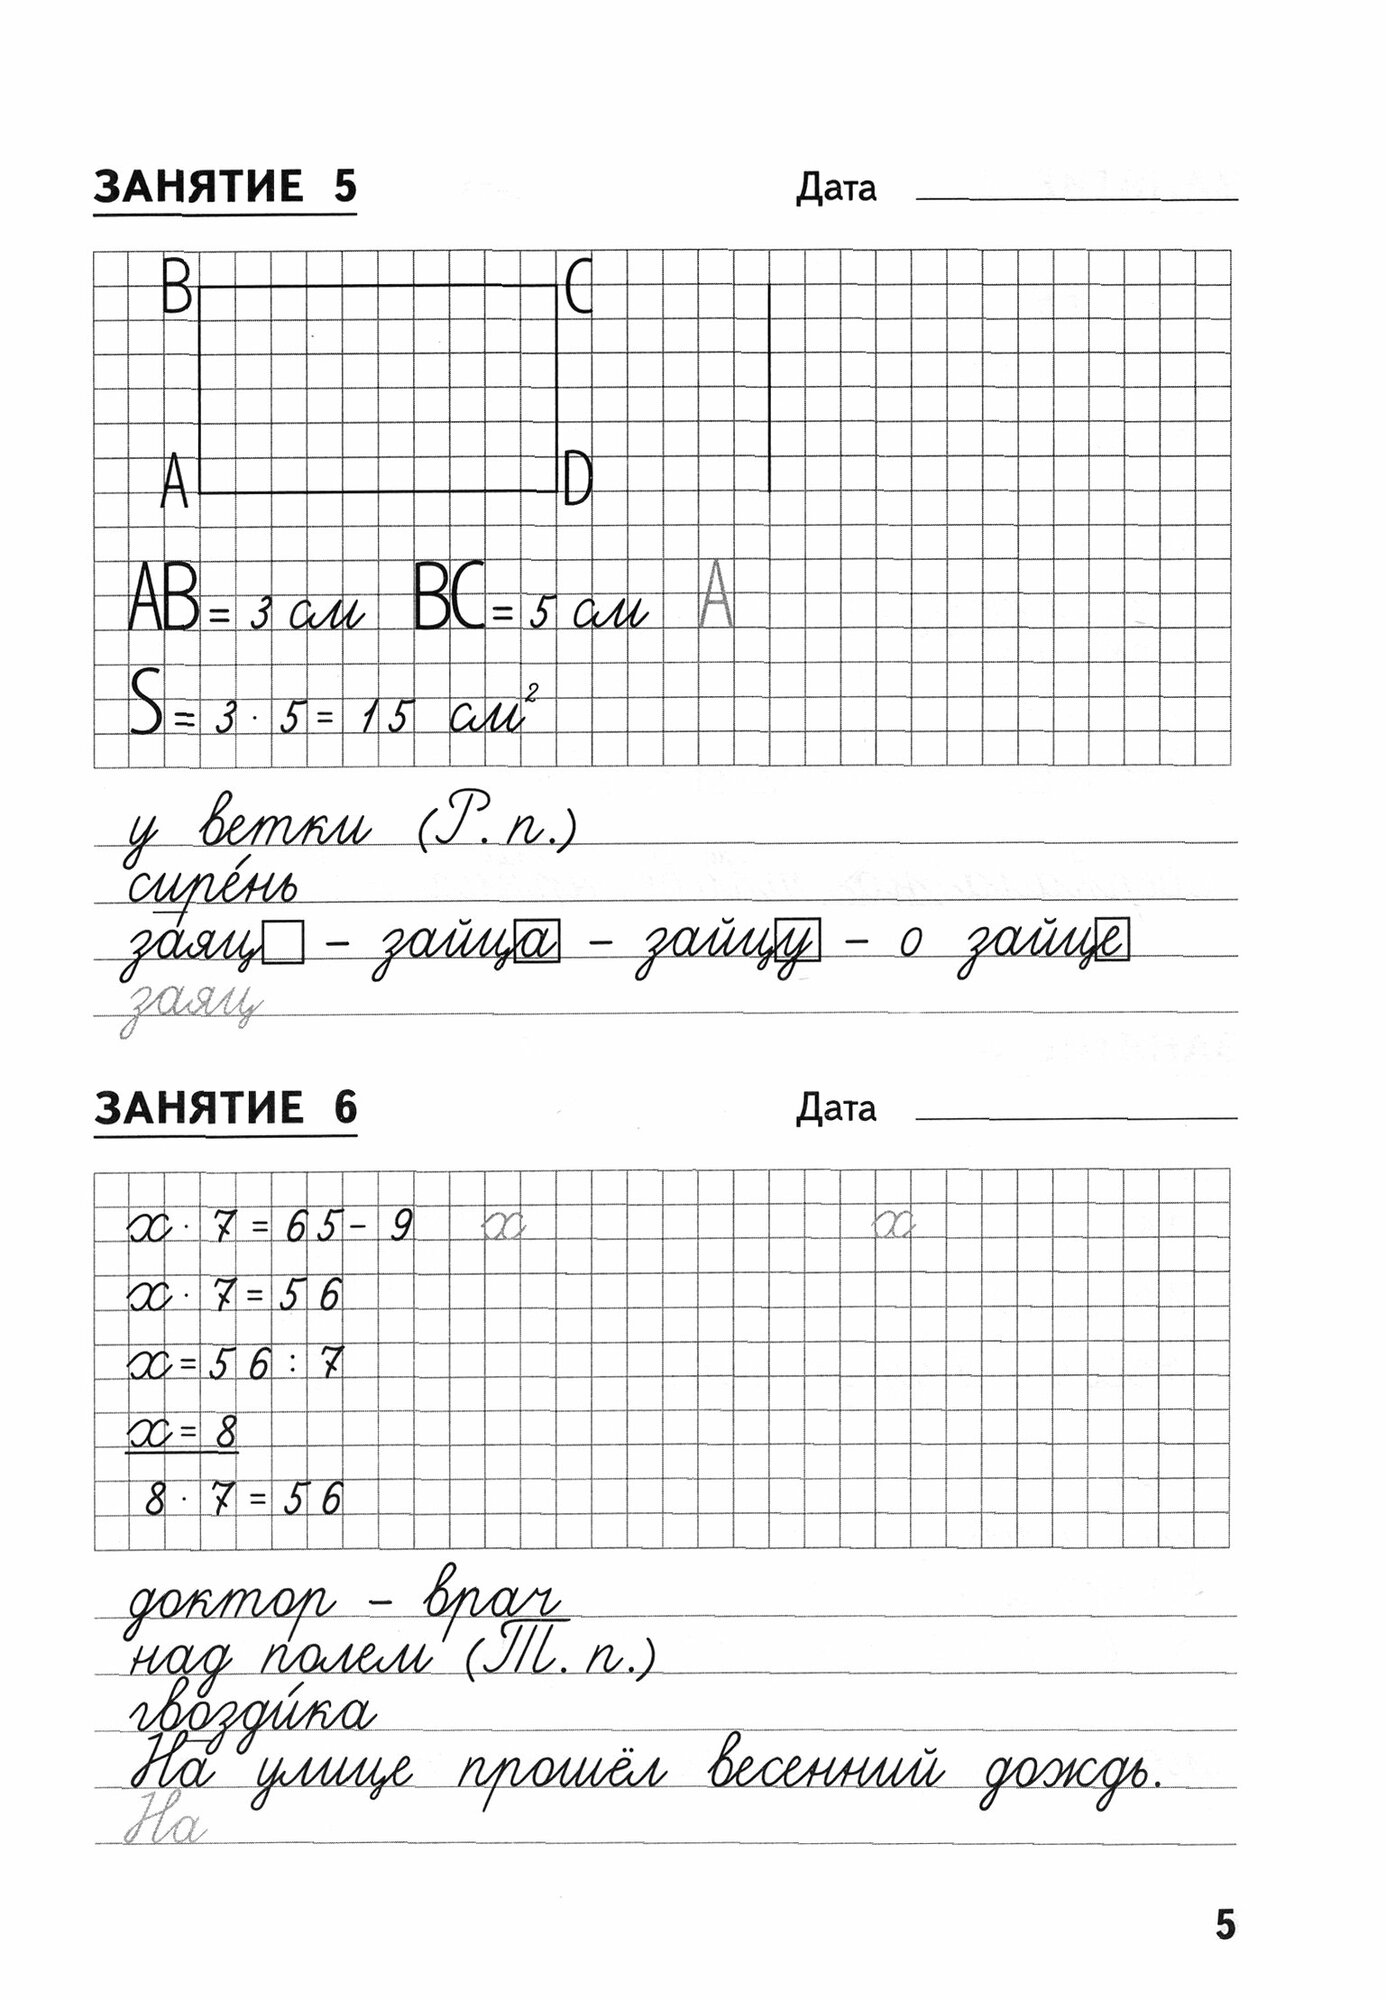 ЗАНЯТИЕ 5 Дата
B C
A D
AB = 3 см BC = 5 см A
S = 3 · 5 = 15 см²
у ветки (Р. п.)
сире́нь
за́яц – зайца – зайцу – о зайце
заяц
ЗАНЯТИЕ 6 Дата
x · 7 = 65 – 9 x x
x · 7 = 56
x = 56 : 7
x = 8
8 · 7 = 56
доктор – врач
над полем (Т. п.)
гвозди́ка
На улице прошёл весенний дождь.
На
5